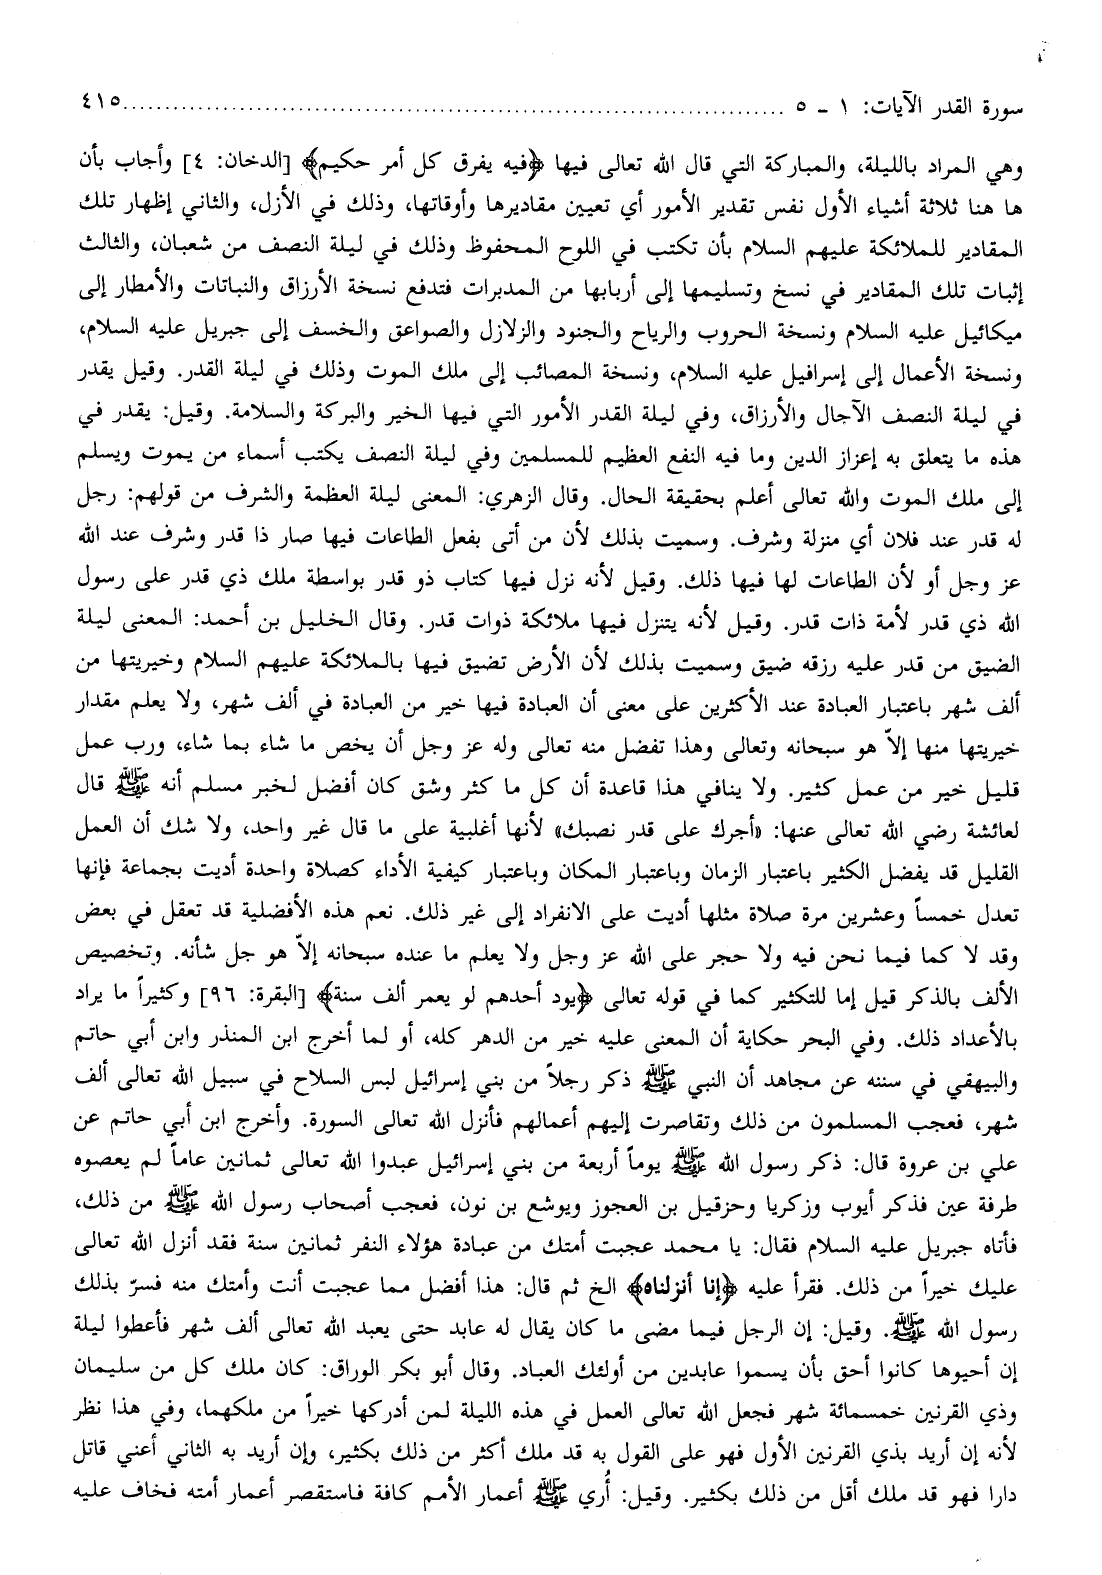 سورة القدر الآيات: ١ ـ ٥ ................................................................................ ٤١٥
وهي المراد بالليلة، والمباركة التي قال الله تعالى فيها ﴿فيه يفرق كل أمر حكيم﴾ [الدخان: ٤] وأجاب بأن
ها هنا ثلاثة أشياء الأول نفس تقدير الأمور أي تعيين مقاديرها وأوقاتها، وذلك في الأزل، والثاني إظهار تلك
المقادير للملائكة عليهم السلام بأن تكتب في اللوح المحفوظ وذلك في ليلة النصف من شعبان، والثالث
إثبات تلك المقادير في نسخ وتسليمها إلى أربابها من المدبرات فتدفع نسخة الأرزاق والنباتات والأمطار إلى
ميكائيل عليه السلام ونسخة الحروب والرياح والجنود والزلازل والصواعق والخسف إلى جبريل عليه السلام،
ونسخة الأعمال إلى إسرافيل عليه السلام، ونسخة المصائب إلى ملك الموت وذلك في ليلة القدر. وقيل يقدر
في ليلة النصف الآجال والأرزاق، وفي ليلة القدر الأمور التي فيها الخير والبركة والسلامة. وقيل: يقدر في
هذه ما يتعلق به إعزاز الدين وما فيه النفع العظيم للمسلمين وفي ليلة النصف يكتب أسماء من يموت ويسلم
إلى ملك الموت والله تعالى أعلم بحقيقة الحال. وقال الزهري: المعنى ليلة العظمة والشرف من قولهم: رجل
له قدر عند فلان أي منزلة وشرف. وسميت بذلك لأن من أتى بفعل الطاعات فيها صار ذا قدر وشرف عند الله
عز وجل أو لأن الطاعات لها فيها ذلك. وقيل لأنه نزل فيها كتاب ذو قدر بواسطة ملك ذي قدر على رسول
الله ذي قدر لأمة ذات قدر. وقيل لأنه يتنزل فيها ملائكة ذوات قدر. وقال الخليل بن أحمد: المعنى ليلة
الضيق من قدر عليه رزقه ضيق وسميت بذلك لأن الأرض تضيق فيها بالملائكة عليهم السلام وخيريتها من
ألف شهر باعتبار العبادة عند الأكثرين على معنى أن العبادة فيها خير من العبادة في ألف شهر، ولا يعلم مقدار
خيريتها منها إلاّ هو سبحانه وتعالى وهذا تفضل منه تعالى وله عز وجل أن يخص ما شاء بما شاء، ورب عمل
قليل خير من عمل كثير. ولا ينافي هذا قاعدة أن كل ما كثر وشق كان أفضل لخبر مسلم أنه ﷺ قال
لعائشة رضي الله تعالى عنها: «أجرك على قدر نصبك» لأنها أغلبية على ما قال غير واحد، ولا شك أن العمل
القليل قد يفضل الكثير باعتبار الزمان وباعتبار المكان وباعتبار كيفية الأداء كصلاة واحدة أديت بجماعة فإنها
تعدل خمساً وعشرين مرة صلاة مثلها أديت على الانفراد إلى غير ذلك. نعم هذه الأفضلية قد تعقل في بعض
وقد لا كما فيما نحن فيه ولا حجر على الله عز وجل ولا يعلم ما عنده سبحانه إلاّ هو جل شأنه. وتخصيص
الألف بالذكر قيل إما للتكثير كما في قوله تعالى ﴿يود أحدهم لو يعمر ألف سنة﴾ [البقرة: ٩٦] وكثيراً ما يراد
بالأعداد ذلك. وفي البحر حكاية أن المعنى عليه خير من الدهر كله، أو لما أخرج ابن المنذر وابن أبي حاتم
والبيهقي في سننه عن مجاهد أن النبي ﷺ ذكر رجلاً من بني إسرائيل لبس السلاح في سبيل الله تعالى ألف
شهر، فعجب المسلمون من ذلك وتقاصرت إليهم أعمالهم فأنزل الله تعالى السورة. وأخرج ابن أبي حاتم عن
علي بن عروة قال: ذكر رسول الله ﷺ يوماً أربعة من بني إسرائيل عبدوا الله تعالى ثمانين عاماً لم يعصوه
طرفة عين فذكر أيوب وزكريا وحزقيل بن العجوز ويوشع بن نون، فعجب أصحاب رسول الله ﷺ من ذلك،
فأتاه جبريل عليه السلام فقال: يا محمد عجبت أمتك من عبادة هؤلاء النفر ثمانين سنة فقد أنزل الله تعالى
عليك خيراً من ذلك. فقرأ عليه ﴿إنا أنزلناه﴾ الخ ثم قال: هذا أفضل مما عجبت أنت وأمتك منه فسرّ بذلك
رسول الله ﷺ. وقيل: إن الرجل فيما مضى ما كان يقال له عابد حتى يعبد الله تعالى ألف شهر فأعطوا ليلة
إن أحيوها كانوا أحق بأن يسموا عابدين من أولئك العباد. وقال أبو بكر الوراق: كان ملك كل من سليمان
وذي القرنين خمسمائة شهر فجعل الله تعالى العمل في هذه الليلة لمن أدركها خيراً من ملكهما، وفي هذا نظر
لأنه إن أريد بذي القرنين الأول فهو على القول به قد ملك أكثر من ذلك بكثير، وإن أريد به الثاني أعني قاتل
دارا فهو قد ملك أقل من ذلك بكثير. وقيل: أُري ﷺ أعمار الأمم كافة فاستقصر أعمار أمته فخاف عليه